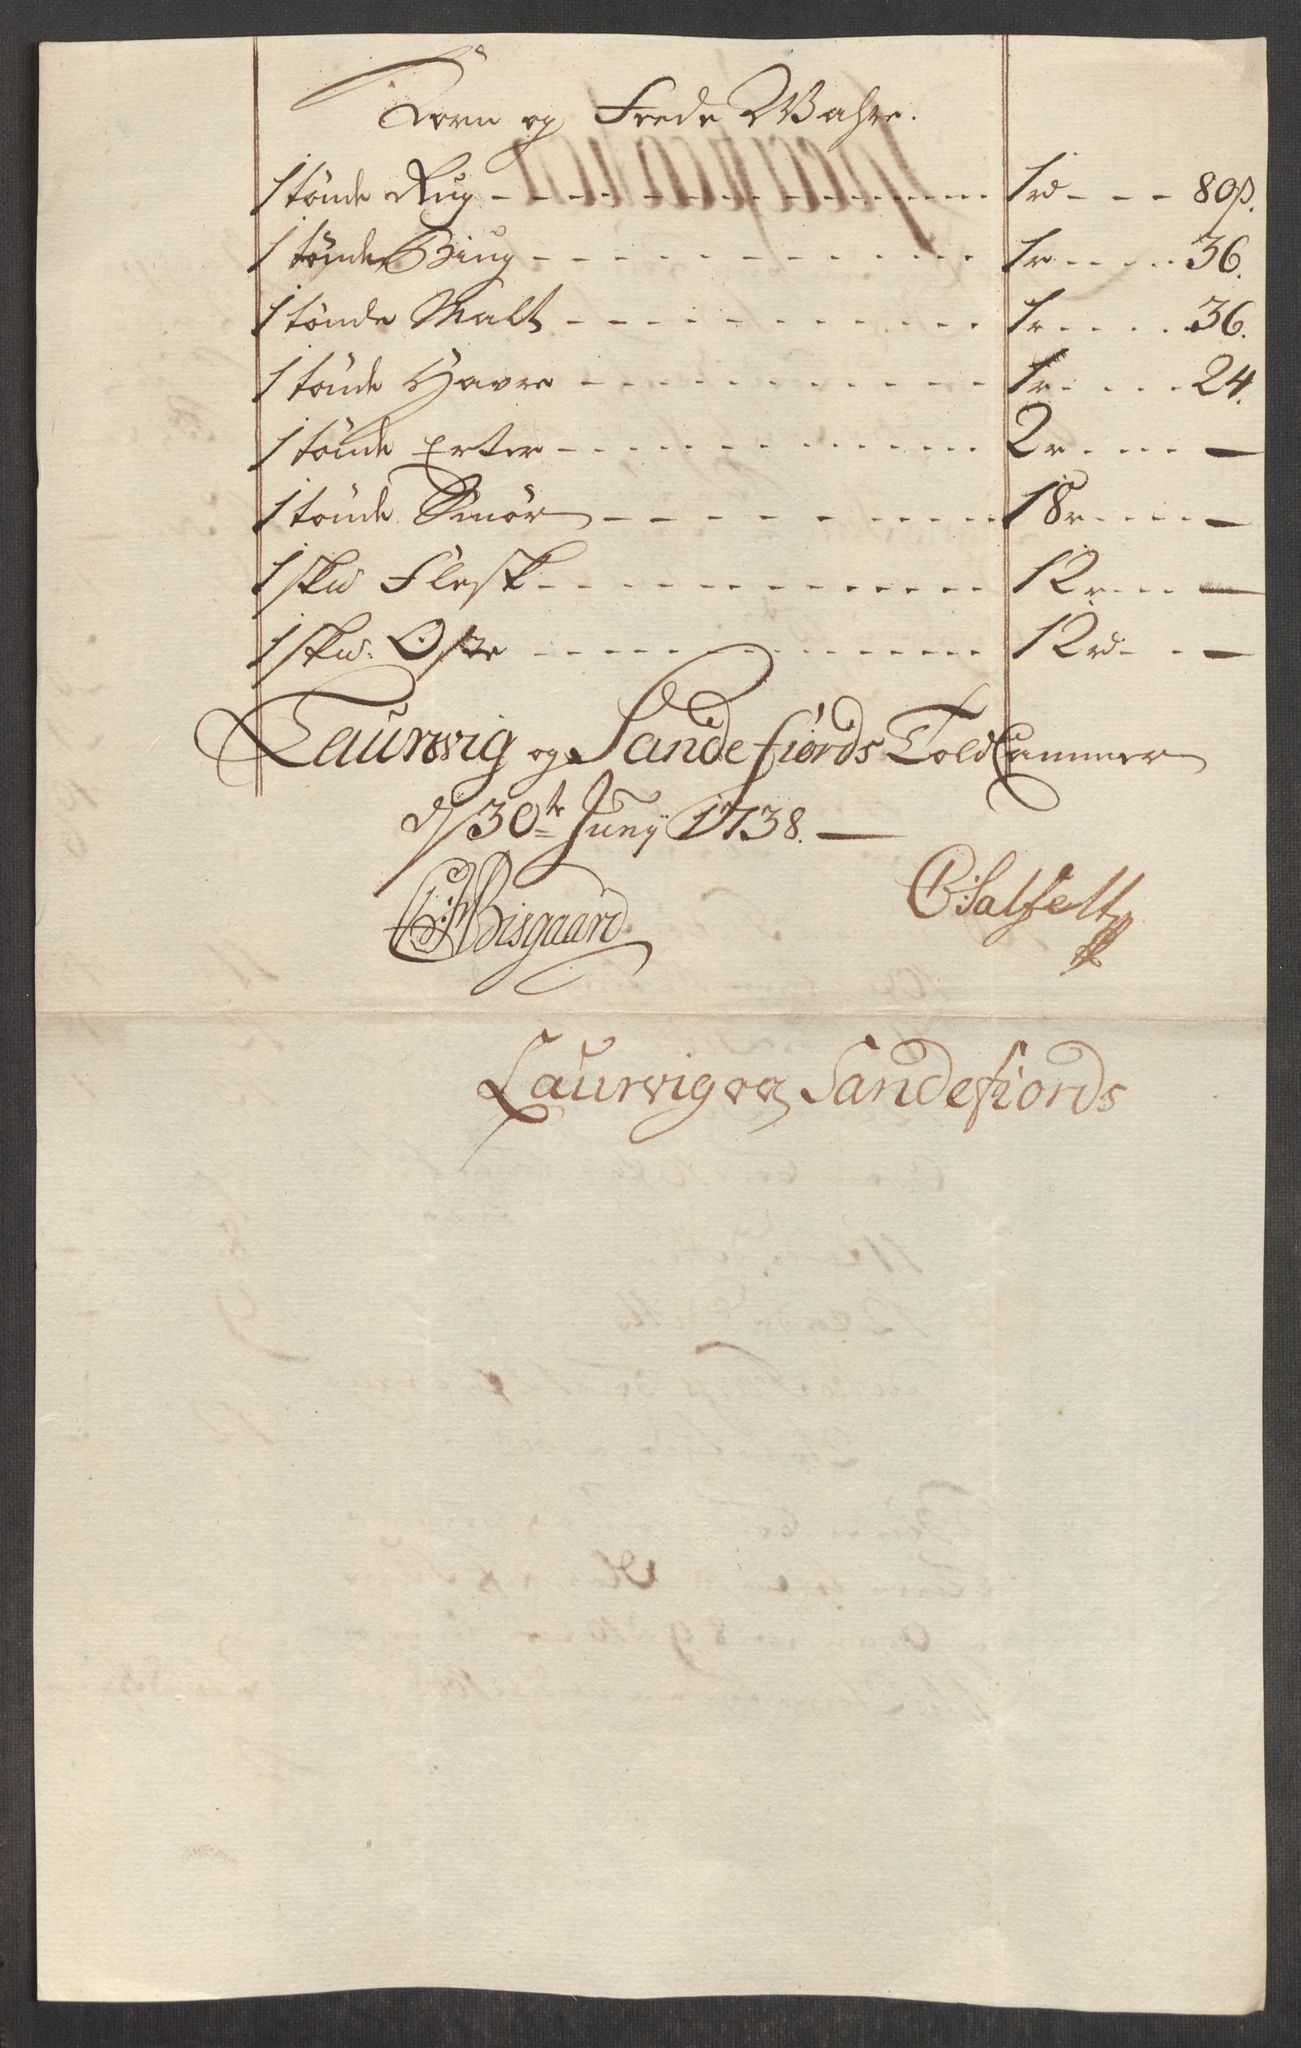 Korn og Fede Wahre.
1 tönde Rug - - - - 1 rd - - - 80 s.
1 tönde Biug - - - - 1 r - - - 36.
1 tönde Malt - - - - 1 r - - - 36.
1 tönde Havre - - - - 1 r - - - 24.
1 tönde Erter - - - - 2 r - - - —
1 tönde Smör - - - - 18 r - - - —
1 sk℔ Flesk - - - - 12 r - - - —
1 sk℔. Oste - - - - 12 rd - - —
Laurwig og Sandefiords Told Cammer
d. 30te Juny 1738. —
Bisgaard
Salfelt
Laurvig og Sandefiords